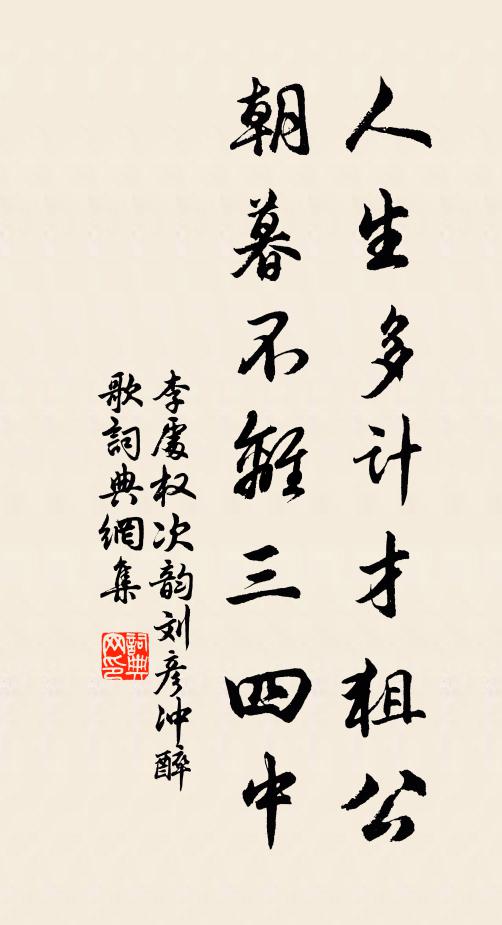 人生多计才狙公
朝暮不離三四中
李處权次韵刘彦冲醉
歌詞典網集
詞典网印